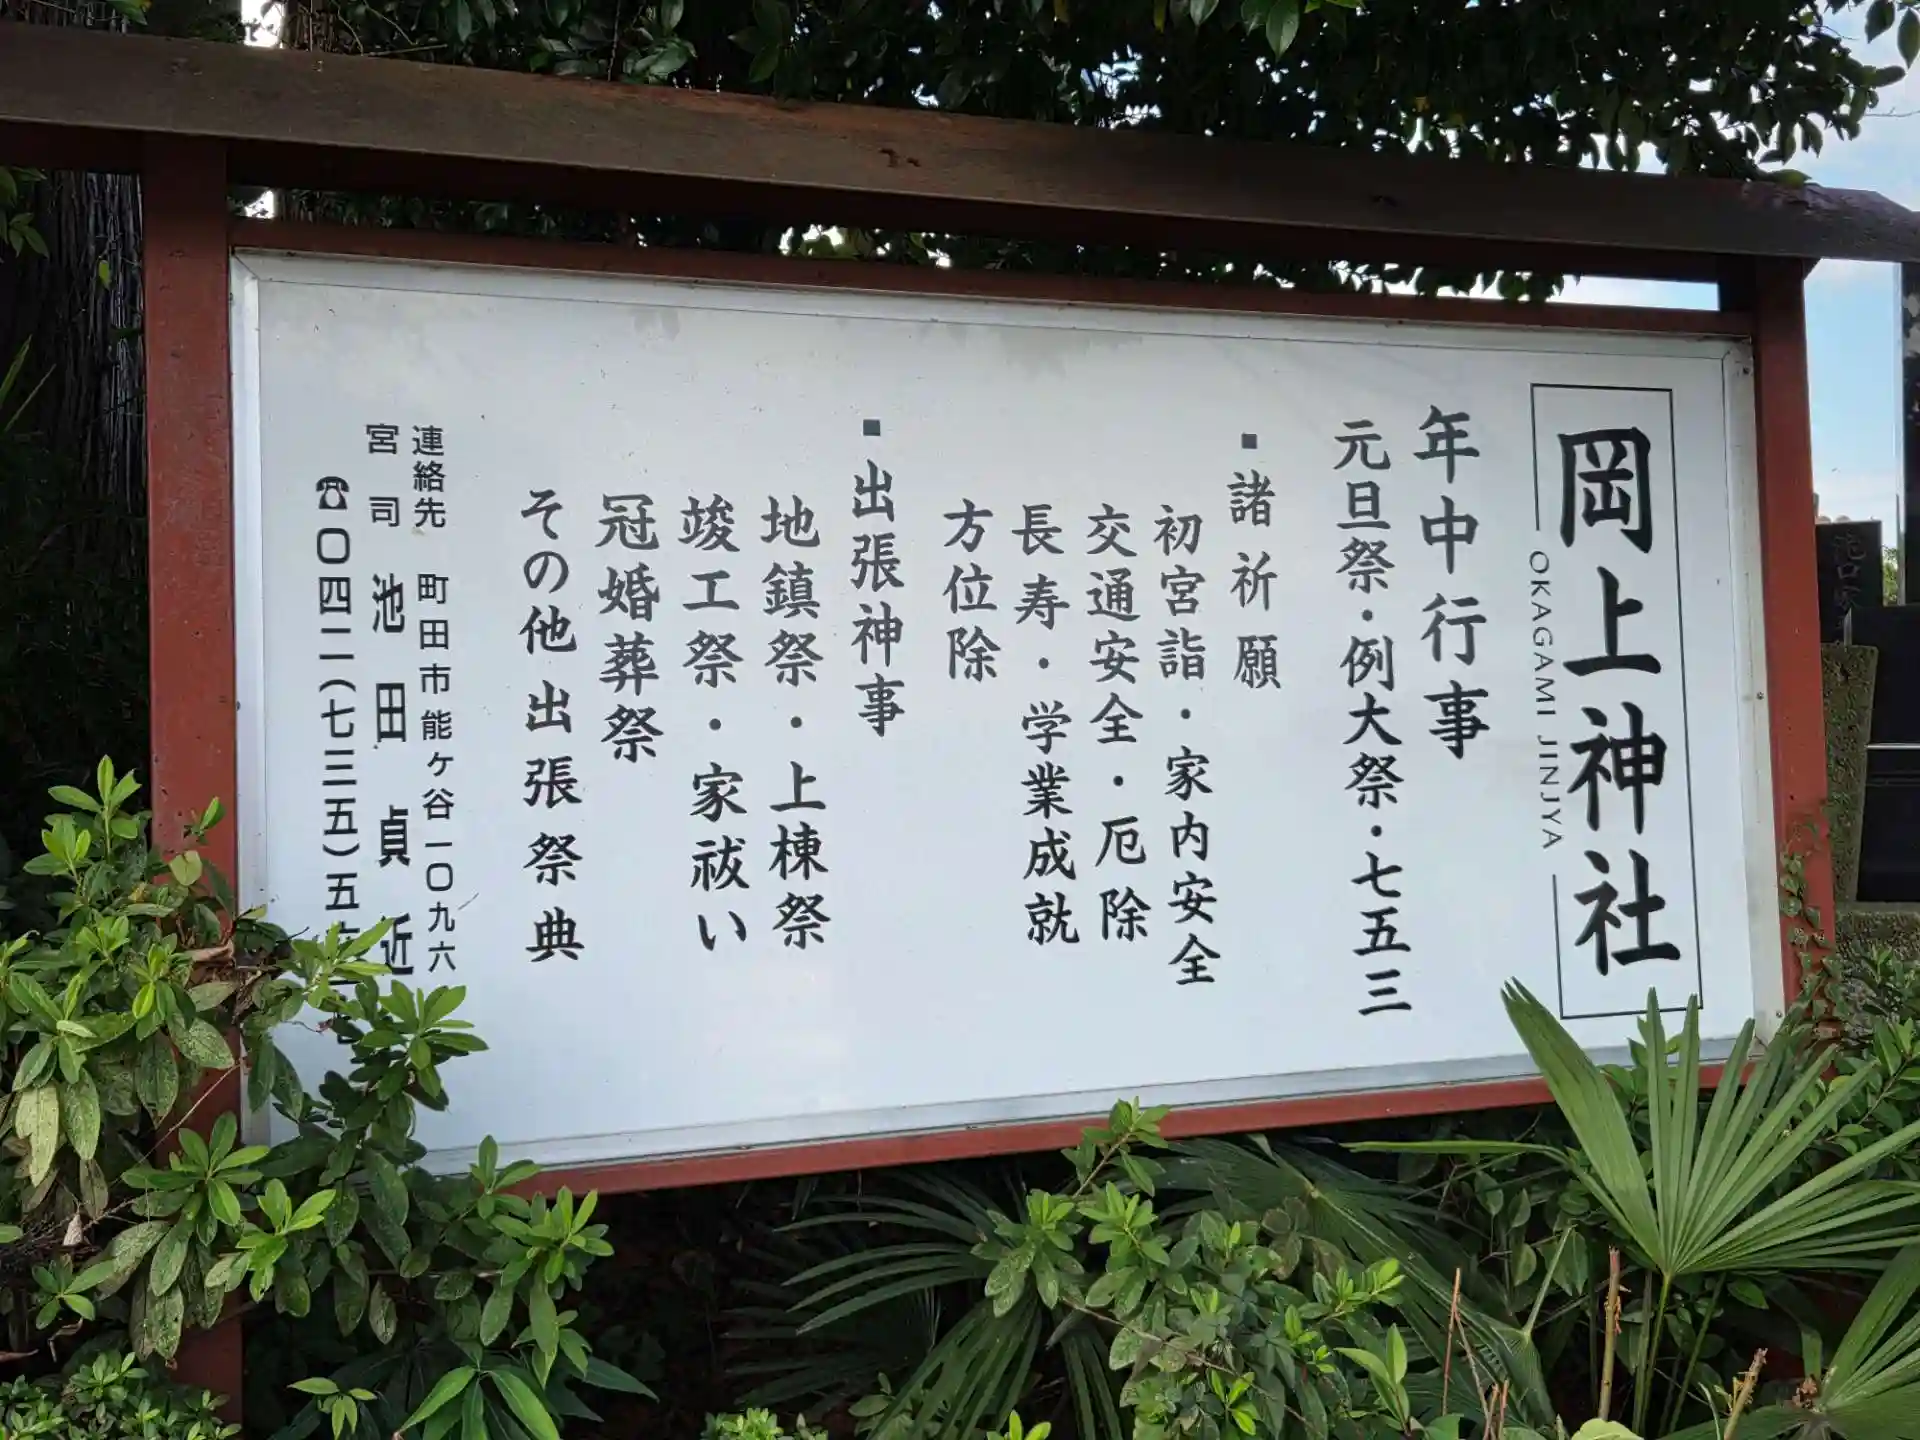 岡上神社
OKAGAMI JINJYA
年中行事
元旦祭・例大祭・七五三
■諸祈願
初宮詣・家内安全
交通安全・厄除
長寿・学業成就
方位除
■出張神事
地鎮祭・上棟祭
竣工祭・家祓い
冠婚葬祭
その他出張祭典
連絡先 町田市能ヶ谷一〇九六
宮司 池田貞近
☎〇四二(七三五)五